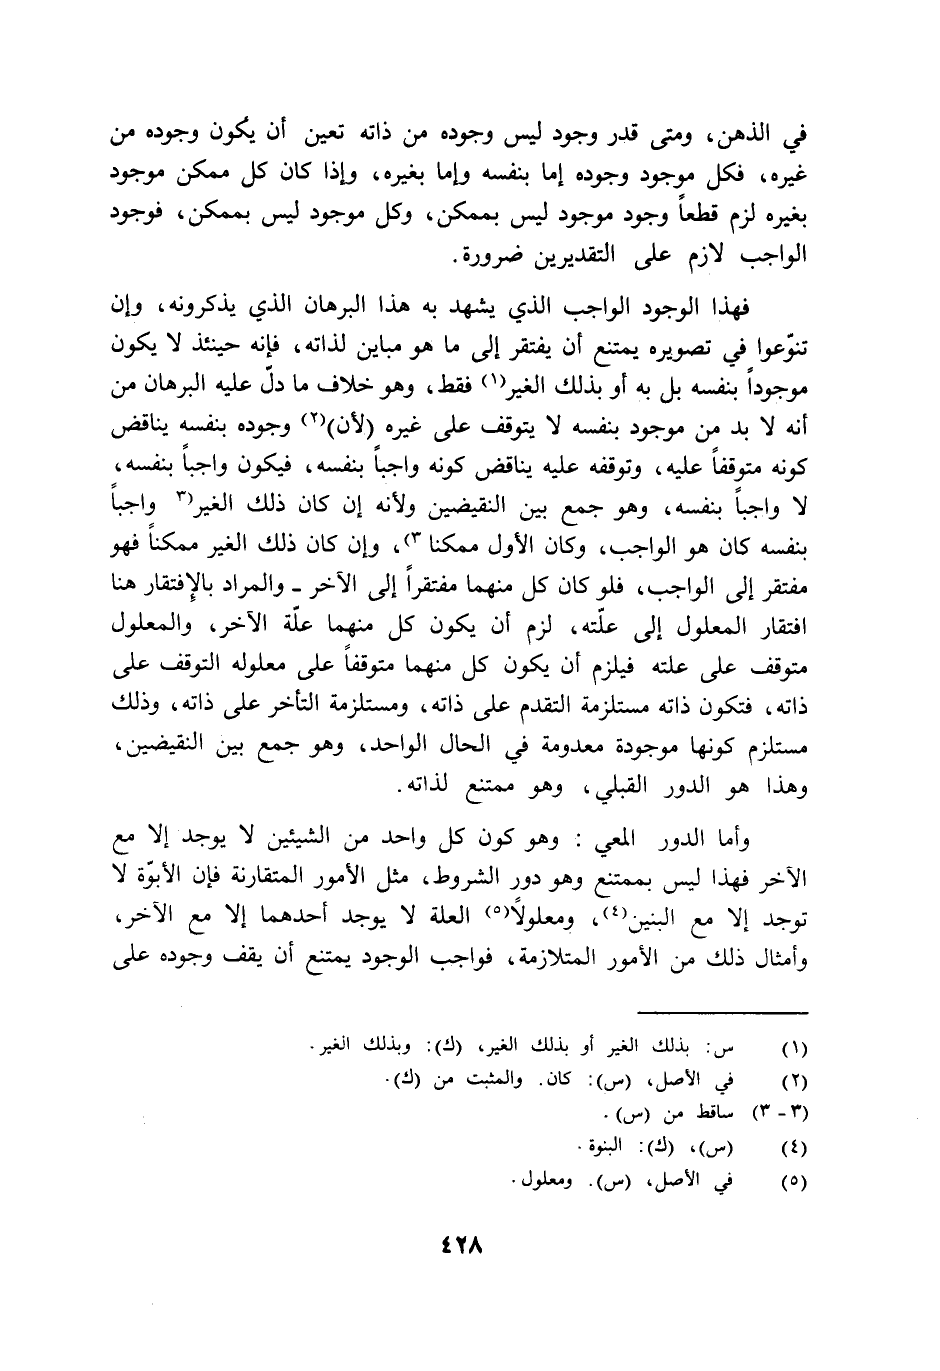 في الذهن، ومتى قدر وجود ليس وجوده من ذاته تعين أن يكون وجوده من
غيره، فكل موجود وجوده إما بنفسه وإما بغيره، وإذا كان كل ممكن موجود
بغيره لزم قطعاً وجود موجود ليس بممكن، وكل موجود ليس بممكن، فوجود
الواجب لازم على التقديرين ضرورة.
فهذا الوجود الواجب الذي يشهد به هذا البرهان الذي يذكرونه، وإن
تنوّعوا في تصويره يمتنع أن يفتقر إلى ما هو مباين لذاته، فإنه حينئذ لا يكون
موجوداً بنفسه بل به أو بذلك الغير(١) فقط، وهو خلاف ما دلّ عليه البرهان من
أنه لا بد من موجود بنفسه لا يتوقف على غيره (لأن)(٢) وجوده بنفسه يناقض
كونه متوقفاً عليه، وتوقفه عليه يناقض كونه واجباً بنفسه، فيكون واجباً بنفسه،
لا واجباً بنفسه، وهو جمع بين النقيضين ولأنه إن كان ذلك الغير(٣ واجباً
بنفسه كان هو الواجب، وكان الأول ممكنا ٣)، وإن كان ذلك الغير ممكناً فهو
مفتقر إلى الواجب، فلو كان كل منهما مفتقراً إلى الآخر ـ والمراد بالإفتقار هنا
افتقار المعلول إلى علّته، لزم أن يكون كل منهما علّة الآخر، والمعلول
متوقف على علته فيلزم أن يكون كل منهما متوقفاً على معلوله التوقف على
ذاته، فتكون ذاته مستلزمة التقدم على ذاته، ومستلزمة التأخر على ذاته، وذلك
مستلزم كونها موجودة معدومة في الحال الواحد، وهو جمع بين النقيضين،
وهذا هو الدور القبلي، وهو ممتنع لذاته.
وأما الدور المعي : وهو كون كل واحد من الشيئين لا يوجد إلا مع
الآخر فهذا ليس بممتنع وهو دور الشروط، مثل الأمور المتقارنة فإن الأبوّة لا
توجد إلا مع البنين(٤)، ومعلولاً(٥) العلة لا يوجد أحدهما إلا مع الآخر،
وأمثال ذلك من الأمور المتلازمة، فواجب الوجود يمتنع أن يقف وجوده على
(١) س: بذلك الغير أو بذلك الغير، (ك): وبذلك الغير.
(٢) في الأصل، (س): كان. والمثبت من (ك).
(٣ - ٣) ساقط من (س).
(٤) (س)، (ك): البنوة.
(٥) في الأصل، (س). ومعلول.
٤٢٨